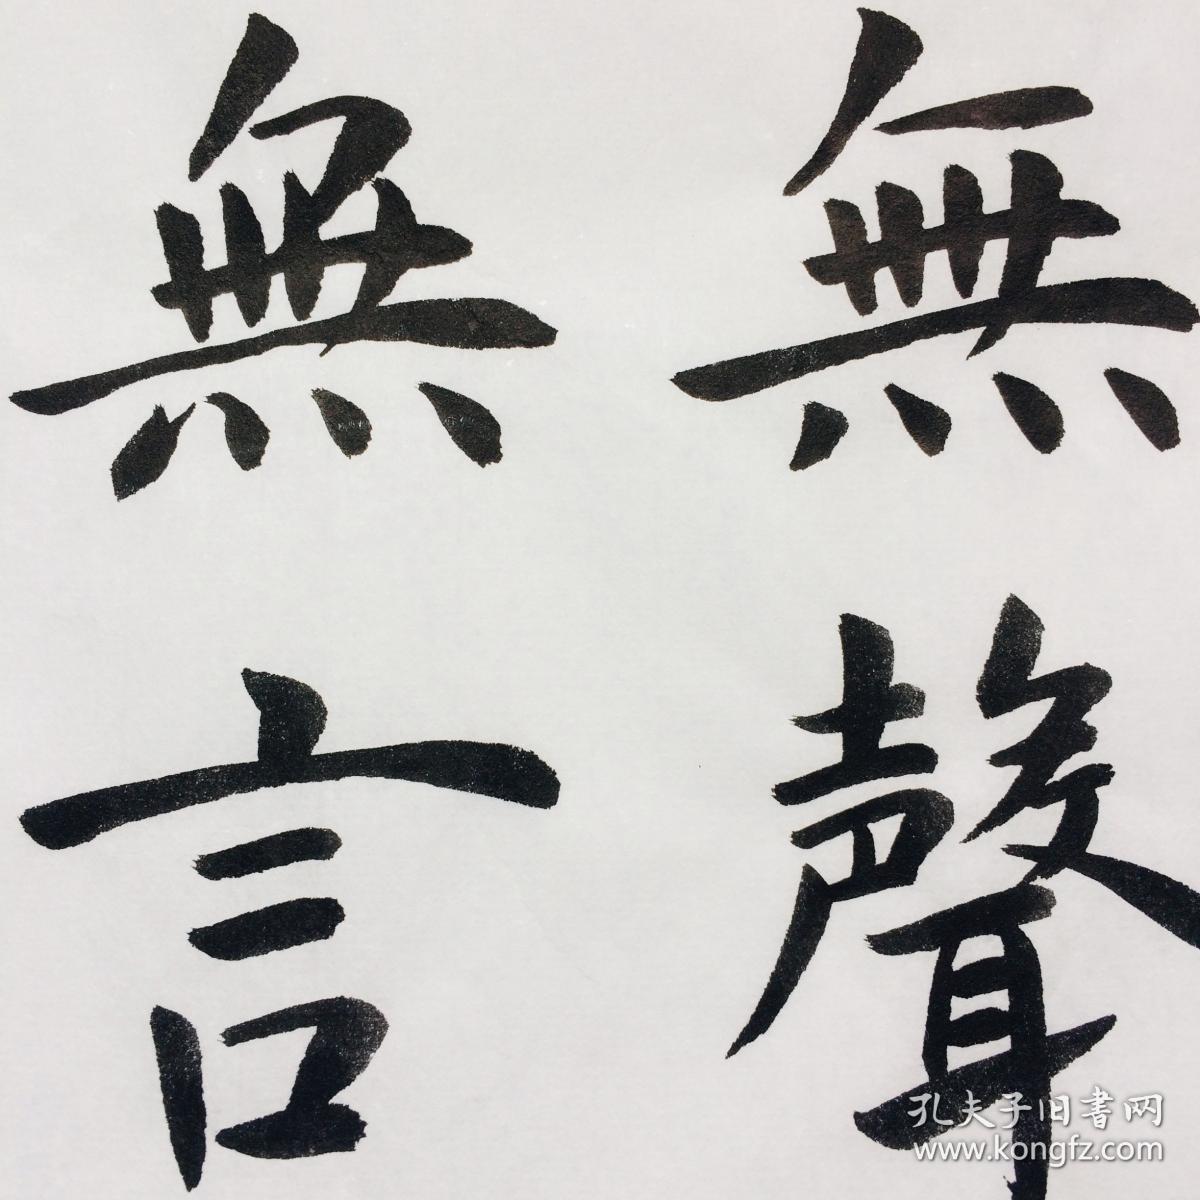 無聲
無言
孔夫子旧書网
www.kongfz.com